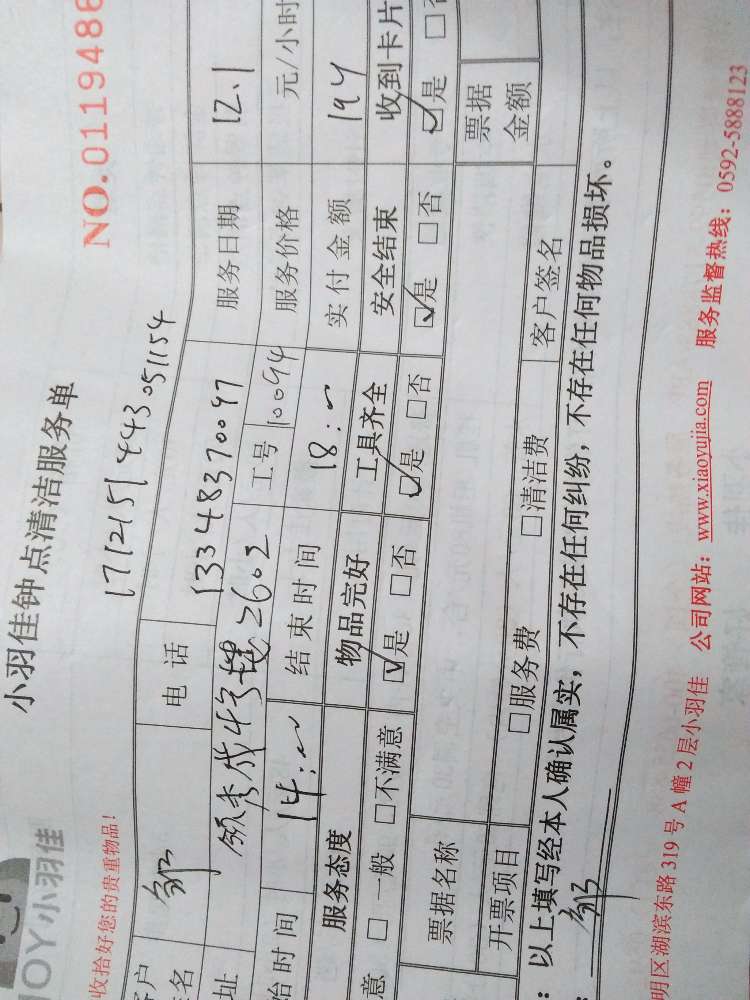 小羽佳钟点清洁服务单
JOY小羽佳
收拾好您的贵重物品!
NO.0119486
1712151443051154
客户
签名 邹 电话 13348370097 服务日期 12.1
址 领秀城4号楼2602 工号 10094 服务价格 元/小时
始时间 14:00 结束时间 18:00 实付金额 194
服务态度 物品完好 工具齐全 安全结束 收到卡片
意 □一般 □不满意 ☑是 □否 ☑是 □否 ☑是 □否 ☑是 □否
票据名称 票据金额
开票项目 □服务费 □清洁费 客户签名
: 以上填写经本人确认属实,不存在任何纠纷,不存在任何物品损坏。
: 邹
明区湖滨东路 319 号 A 幢 2 层小羽佳 公司网站: www.xiaoyujia.com 服务监督热线: 0592-5888123